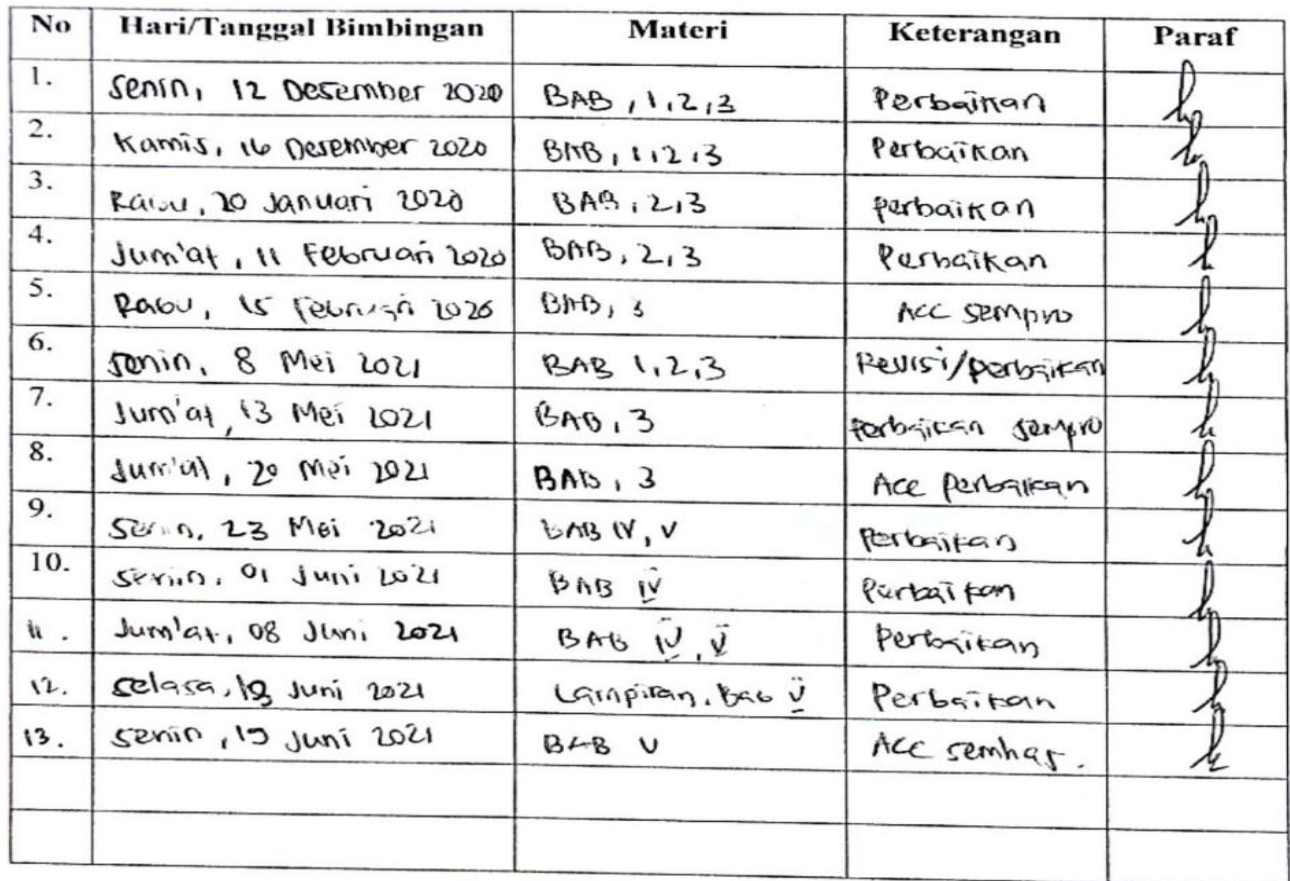 No Hari/Tanggal Bimbingan Materi Keterangan Paraf
1. Senin, 12 Desember 2020 BAB, 1,2,3 Perbaikan
2. Kamis, 16 Desember 2020 BAB, 1,2,3 Perbaikan
3. Rabu, 20 Januari 2020 BAB, 2,3 perbaikan
4. Jum'at, 11 Februari 2020 BAB, 2,3 Perbaikan
5. Rabu, 15 Februari 2020 BAB, 3 Acc sempro
6. Senin, 8 Mei 2021 BAB 1,2,3 Revisi/perbaikan
7. Jum'at, 13 Mei 2021 BAB, 3 Perbaikan sempro
8. Jum'at, 20 Mei 2021 BAB, 3 Acc Perbaikan
9. Senin, 23 Mei 2021 BAB IV, V Perbaikan
10. Senin, 01 Juni 2021 BAB IV Perbaikan
11. Jum'at, 08 Juni 2021 BAB IV, V Perbaikan
12. Selasa, Juni 2021 Lampiran, Bab V Perbaikan
13. Senin, 19 Juni 2021 BAB V ACC semhas.